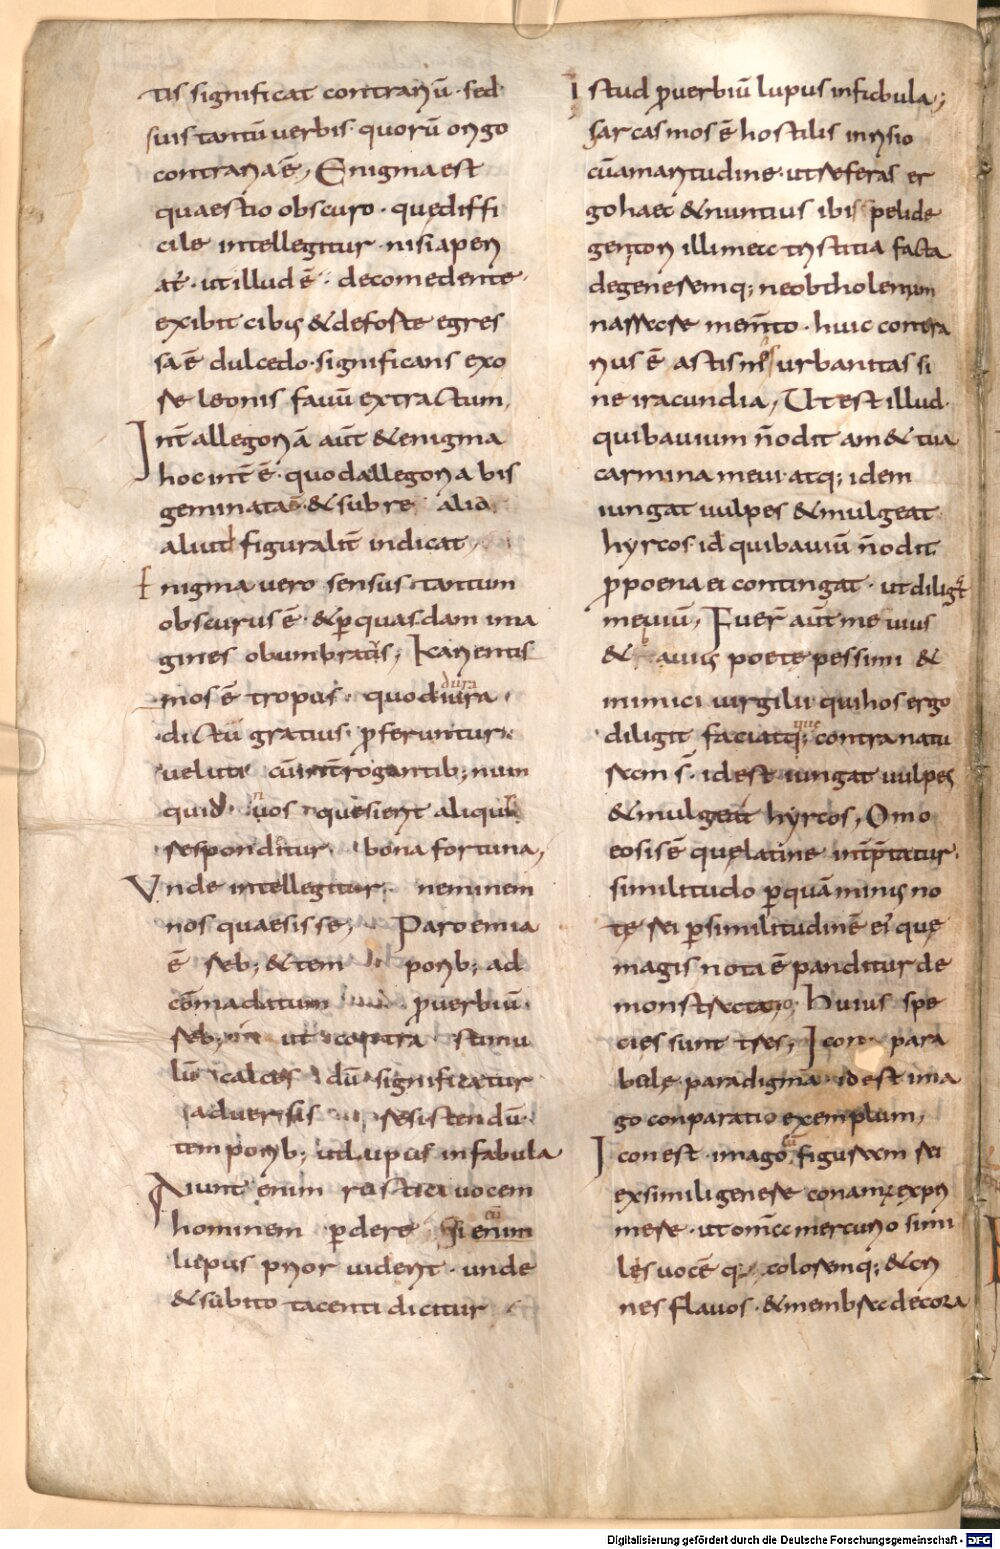 tis significat contrariū · sed
suis tantū verbis · quorū origo
contraria ē, Enigma est
quaestio obscuro · quę diffi
cile intellegitur · nisi aperi
at̄ · ut illud ē · de comedente ·
exibit cibis & deforte egres
sa ē dulcedo · significans exo
re leonis favū extractum,
Int̄ allegoriā aūt & enigma
hoc int̄ ē · quod allegoria bis
geminata ē & sub re alia
aliut figuralit̄ indicat,
Enigma vero sensus tantum
obscurus ē · & p quasdam ima
gines obumbratus, Icarientis
mos ē tropus · quod iura
dura
dictū gratius pferuntur ·
veluti cū introgantib; num
quid nos quesierit aliquis
respondit̄ur · bona fortuna,
Unde intellegitur · neminem
nos quaesisse, Paroemia
ē reb; & tem porib; ad
cōmadatum pverbiū ·
reb; ut contra stimu
lū calces dū significatur
adversis resistendū ·
temporib; ut lupus in fabula
Aiunt enim rustici vocem
hominem pdere si enim
eū
lupus prior viderit · unde
& subito tacenti dicitur
Istud pverbiū lupus in fabula,
sarcasmos ē hostilis inrisio
cū amaritudine · ut referas er
go haec & nuntius ibis pelide
genitori illi mea tristitia facta
degeneremq; neobtholemum
narrare memto · huic contra
rius ē astismos urbanitas si
ne iracundia, Ut est illud ·
qui bavium n̄ odit am& tua
carmina mevi · atq; idem
iungat vulpes & mulgeat
hyrcos id qui baviū n̄ odit
p poena ei contingat · ut diligat
meviū, Fuer̄ aūt mevius
& bavius poete pessimi &
inimici virgilii qui hos ergo
diligit faciatq; contra natu
que
ram s̄ · id est iungat vulpes
& mulgeat hyrcos, Omo
eosis ē quę latine intp̄tatur ·
similitudo p quā minus no
tę rei p similitudinē ei' quę
magis nota ē panditur de
monstratio · Huius spe
cies sunt tres, Icon para
bole paradigma · id est ima
go conparatio exemplum,
Icon est imago cū figuram rei
ex simili genere conamur expri
mere · ut omīa mercurio simi
les vocē q; coloremq; & cri
nes flavos · & membra decora